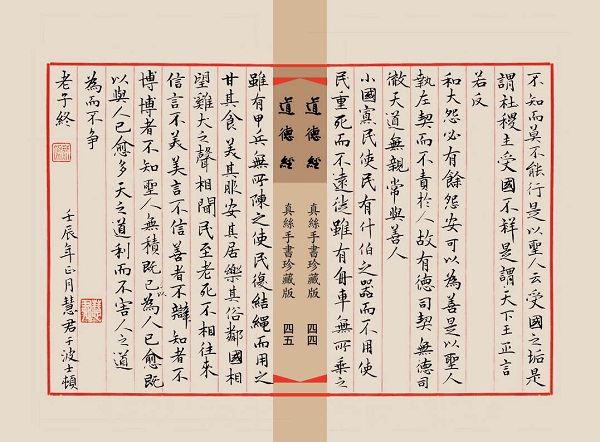 不知而莫不能行是以聖人云受國之垢是
謂社稷主受國不祥是謂天下王正言
若反
和大怨必有餘怨安可以為善是以聖人
執左契而不責於人故有德司契無德司
徹天道無親常與善人
小國寡民使民有什伯之器而不用使
民重死而不遠徙雖有舟車無所乘之
道德經 真絲手書珍藏版 四四
道德經 真絲手書珍藏版 四五
雖有甲兵無所陳之使民復結繩而用之
甘其食美其服安其居樂其俗鄰國相
望雞犬之聲相聞民至老死不相往來
信言不美美言不信善者不辯知者不
博博者不知聖人無積既已以為人已愈既
以與人已愈多天之道利而不害人之道
為而不争
老子終
壬辰年正月慧君于波士頓